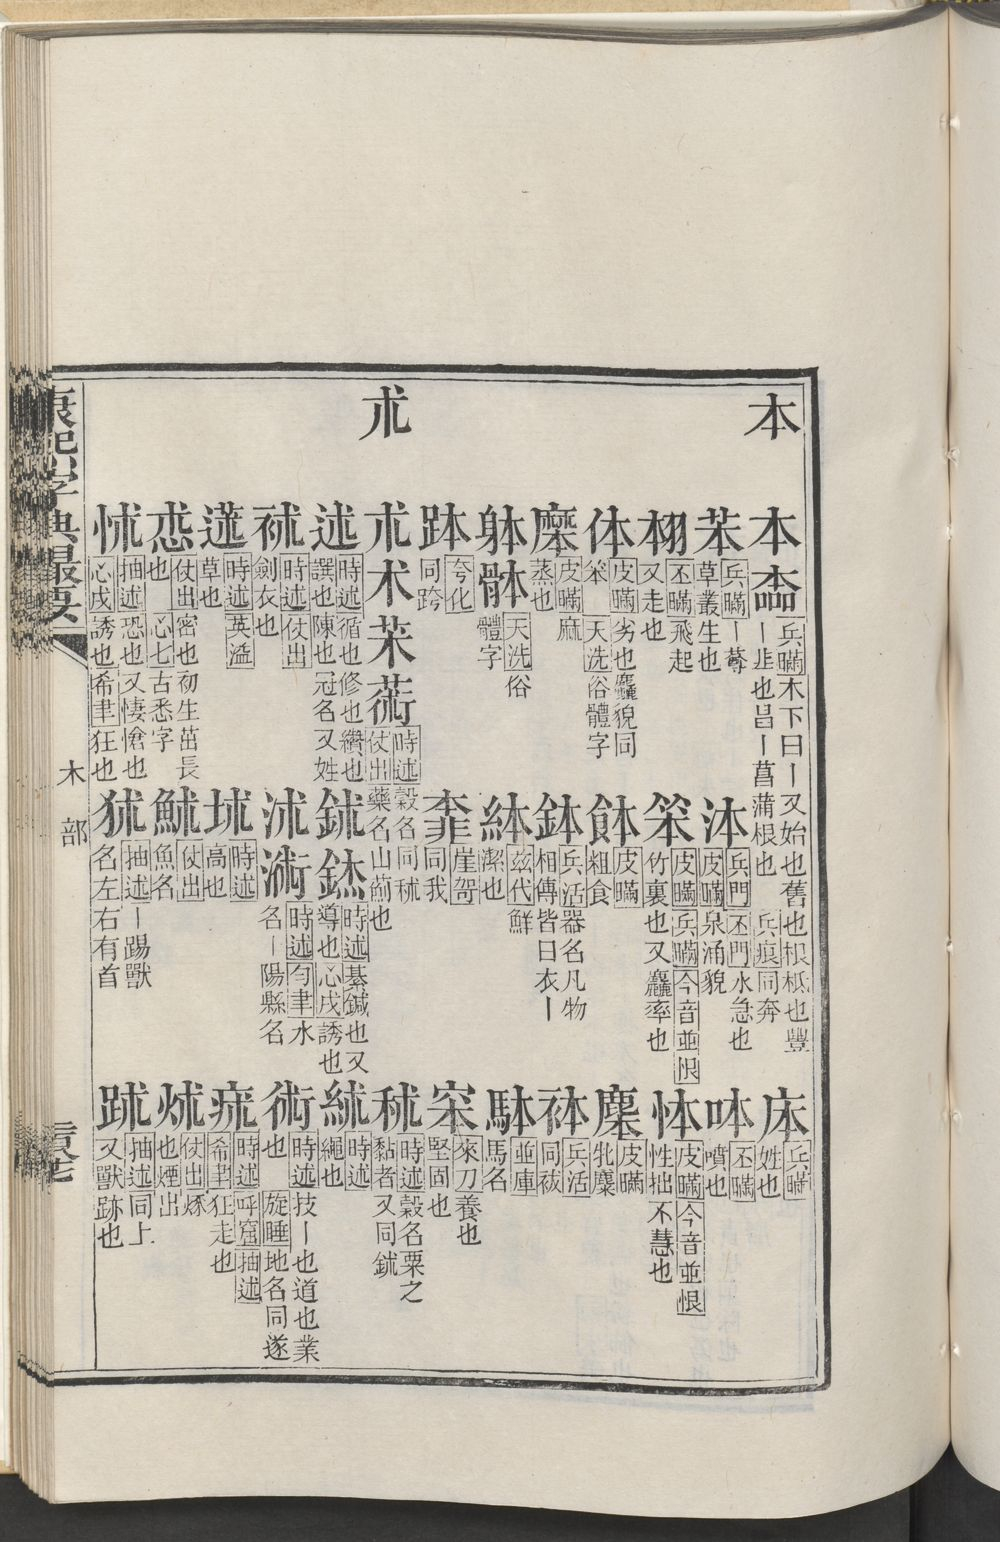 本
本㮺兵瞞木下曰丨又始也舊也根柢也豐
丨韭也昌丨菖蒲根也 兵痕同奔
苯兵瞞丨䔿
草叢生也
丕瞞飛起
又走也
体皮瞞劣也麤貌同
笨 天洗俗體字
皮瞞麻
蒸也
躰骵天洗俗
體字
夸化
同跨
泍兵門丕門水急也
皮瞞泉涌貌
笨皮瞞兵瞞今音並恨
竹裏也又麤率也
皮瞞
粗食
鉢兵活器名凡物
相傳皆曰衣丨
玆代鮮
潔也
崖哿
同我
兵瞞
姓也
呠丕瞞
噴也
体皮瞞今音並恨
性拙 不慧也
皮瞞
牝麋
袜兵活
同袚
並庫
馬名
來刀養也
堅固也
朮
朮术苿蒁時述穀名同秫
仗出藥名山薊也
述時述循也修也纘也
譔也陳也冠名又姓
時述仗出
劍衣也
蒁時述英溢
草也
怷仗出密也初生茁長
也 心七古悉字
怵抽述恐也又悽愴也
心戌誘也希聿狂也
鉥時述綦鍼也又
導也心戌誘也
沭時述匀聿水
名丨陽縣名
時述
高也
鮛仗出
魚名
狖抽述丨踢獸
名左右有首
秫時述穀名粟之
黏者又同鉥
時述
繩也
術時述技丨也道也業
也 旋睡地名同遂
時述呼窟抽述
希聿狂走也
炢仗出烼
也煙出
抽述同上
又獸跡也
康熙字典最要
木部